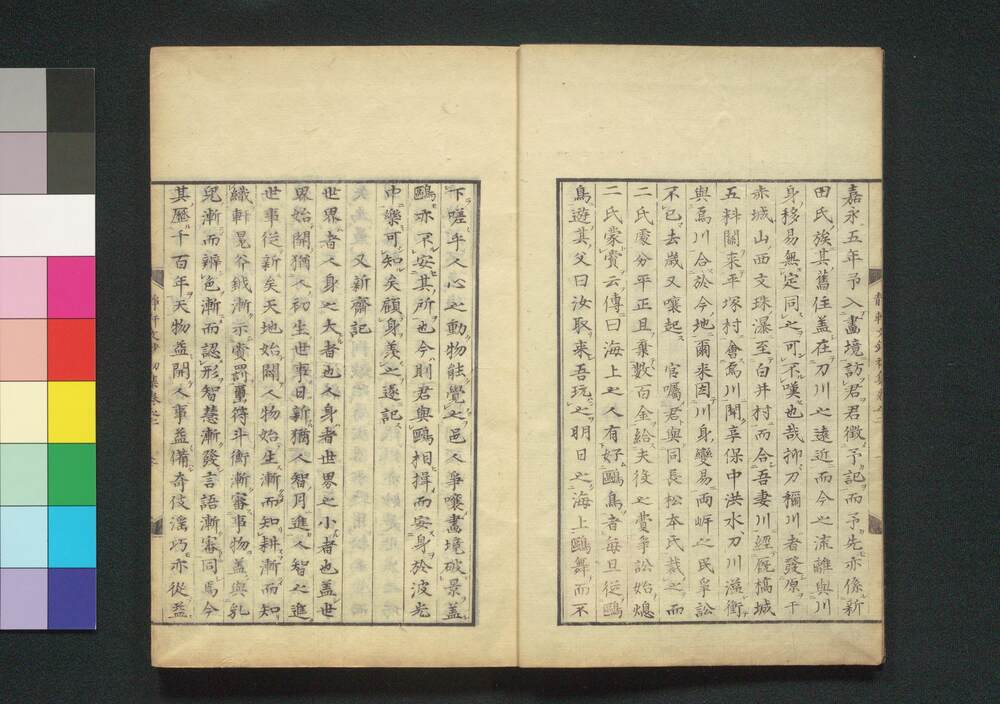 嘉永五年予入畫境訪君君徵予記而予先亦係新
田氏族其舊住蓋在刀川之遠近而今之流離與川
身移易無定同之可不嘆也哉抑刀禰川者發原于
赤城山西文珠瀑至白井村而合吾妻川經厩橋城
五料關來平塚村會烏川聞享保中洪水刀川溢衝
與烏川合於今地爾來因川身變易兩岸之民爭訟
不已去歲又嚷起 官囑君與同長松本氏裁之而
二氏處分平正且棄數百金給夫役之費爭訟始熄
二氏蒙賞云傳曰海上之人有好鷗鳥者每旦從鷗
鳥遊其父曰汝取來吾玩之明日之海上鷗舞而不
下嗟乎人心之動物能覺之邑人爭嚷畫境破景蓋
鷗亦不安其所也今則君與鷗相揖而安身於波光
中樂可知矣顧身羨之遂記
又新齋記
世界者人身之大者也人身者世界之小者也蓋世
界始開猶人初生世事日新猶人智月進人智之進
世事從新矣天地始闢人物始生漸而知耕漸而知
織軒冕斧鉞漸示賞罰璽符斗衡漸審事物蓋與乳
兒漸而辨色漸而認形智慧漸發言語漸審同焉今
其歷千百年天物益開人事益備奇伎淫巧亦從益